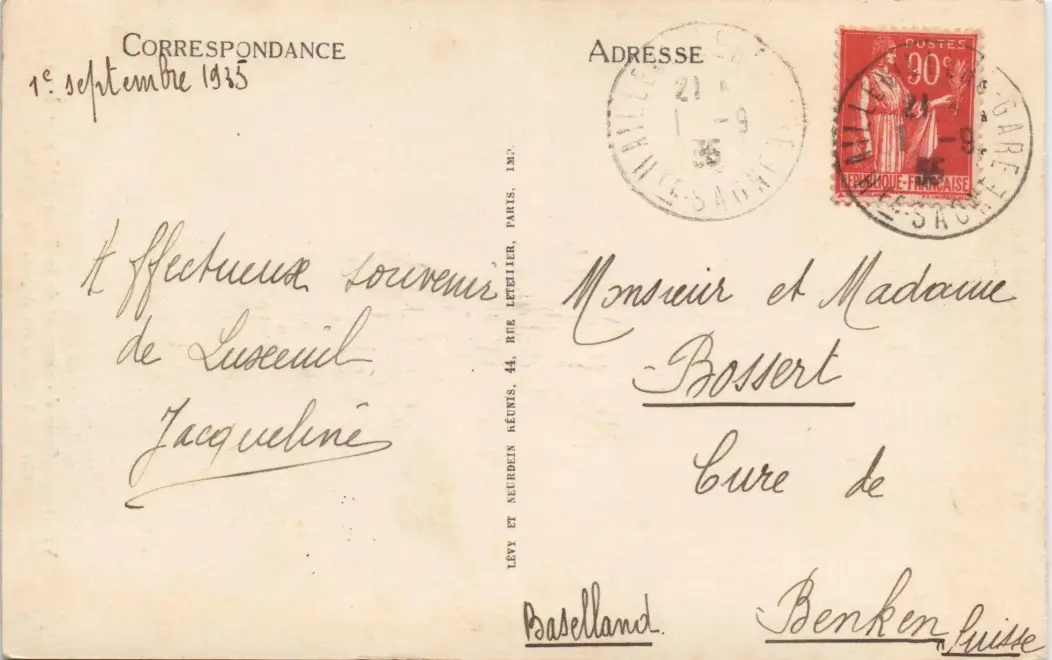 CORRESPONDANCE
1e septembre 1935
Affectueux souvenir
de Luxeuil
Jacqueline
LÉVY ET NEURDEIN RÉUNIS, 44, RUE LETELLIER, PARIS, IMP.
ADRESSE
21
1 -9
35
HTE-SAONE
POSTES
90c
REPUBLIQUE-FRANCAISE
21
1 -9
35
GARE
HTE-SAONE
Monsieur et Madame
Bossert
Cure de
Benken, Suisse
Baselland.